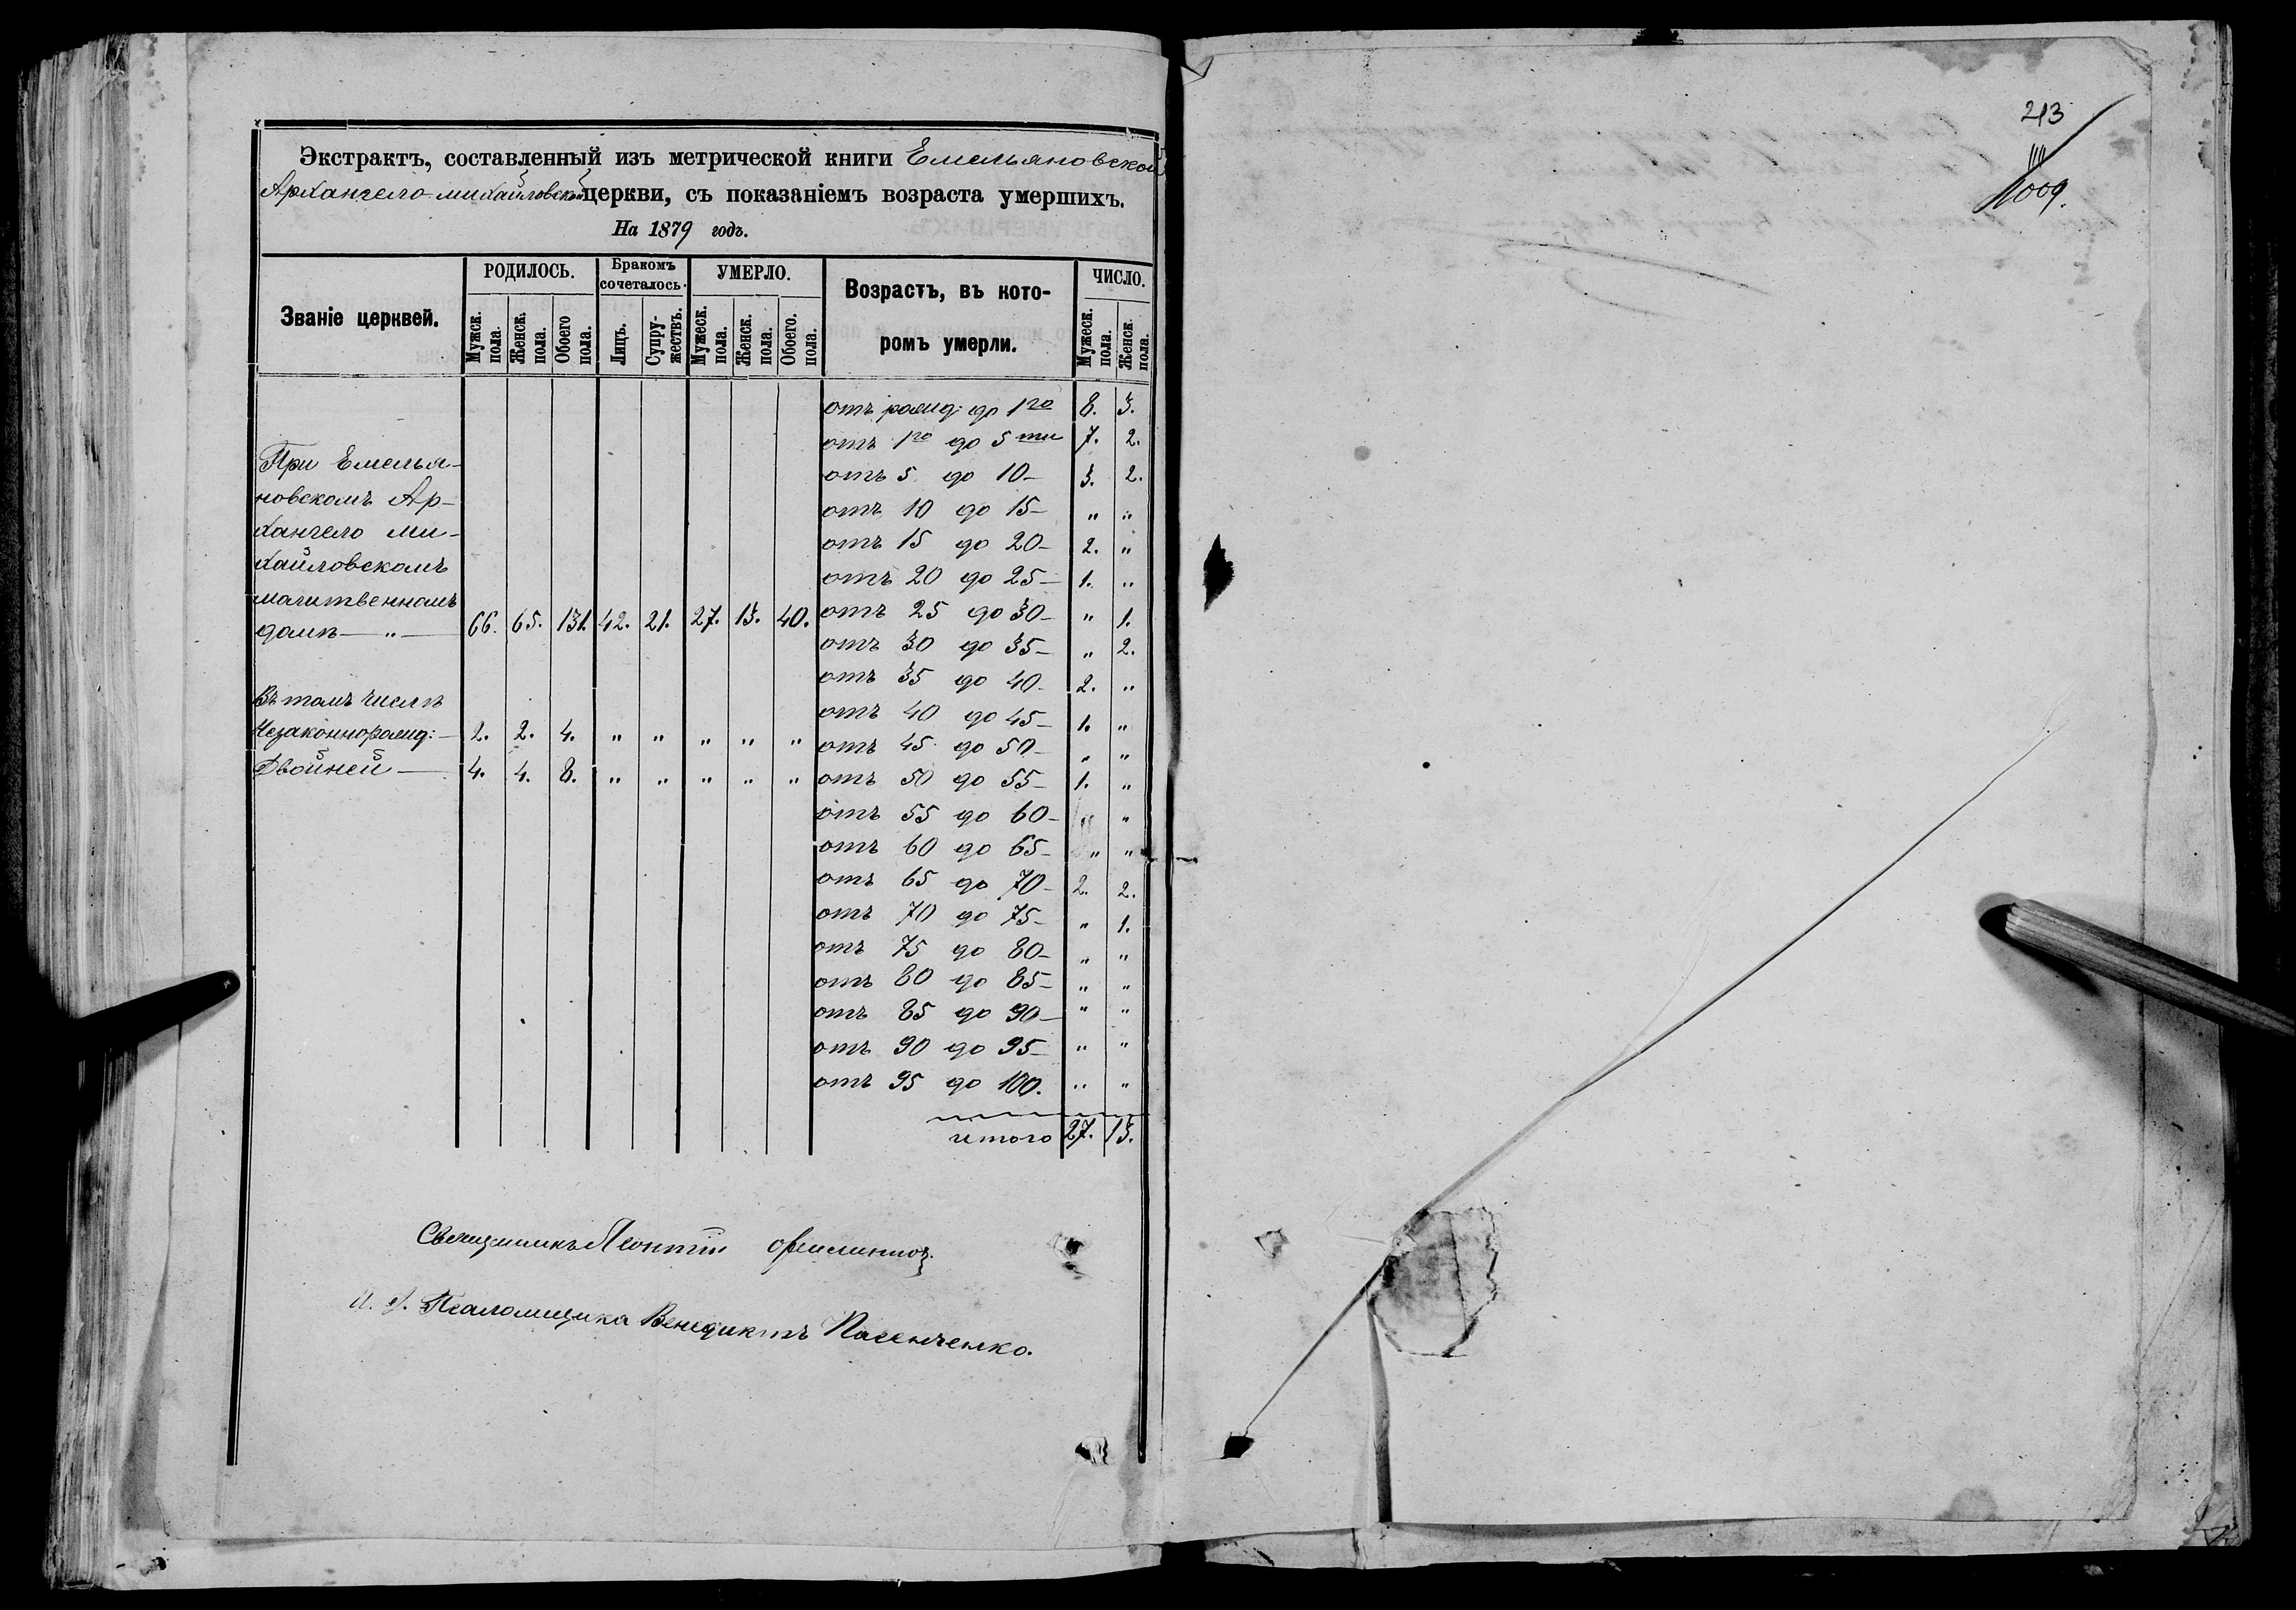 Экстрактъ, составленный изъ метрической книги Емельяновской
Архангело-михайловской церкви, съ показаніемъ возраста умершихъ.
На 1879 годъ.
Званіе церквей. РОДИЛОСЬ. Бракомъ сочеталось. УМЕРЛО. Возрастъ, въ кото-ромъ умерли. ЧИСЛО.
Мужск. пола. Женск. пола. Обоего пола. Лицъ. Супру-жествъ. Мужеск. пола. Женск. пола. Обоего. пола. Мужеск. пола. Женск. пола.
отъ рожд: до 1го 8. 3.
отъ 1го до 5ти 7. 2.
При Емелья-
отъ 5 до 10- 3. 2.
новскомъ Ар-
отъ 10 до 15- " "
хангело ми-
отъ 15 до 20- 2. "
хайловскомъ
отъ 20 до 25- 1. "
молитвенномъ
домѣ — " — 66. 65. 131. 42. 21. 27. 13. 40.
отъ 25 до 30- " 1.
отъ 30 до 35- " 2.
отъ 35 до 40- 2. "
Въ томъ числѣ
отъ 40 до 45- 1. "
Незаконнорожд: - 2. 2. 4. " " " " "
отъ 45 до 50- " "
Двойней — 4. 4. 8. " " " " "
отъ 50 до 55- 1. "
отъ 55 до 60- " "
отъ 60 до 65- " "
отъ 65 до 70- 2. 2.
отъ 70 до 75- " 1.
отъ 75 до 80- " "
отъ 80 до 85- " "
отъ 85 до 90- " "
отъ 90 до 95- " "
отъ 95 до 100. " "
итого 27. 13.
Священникъ Леонтій
И. д. Псаломщика Венедиктъ Пасенченко.
213
1009.